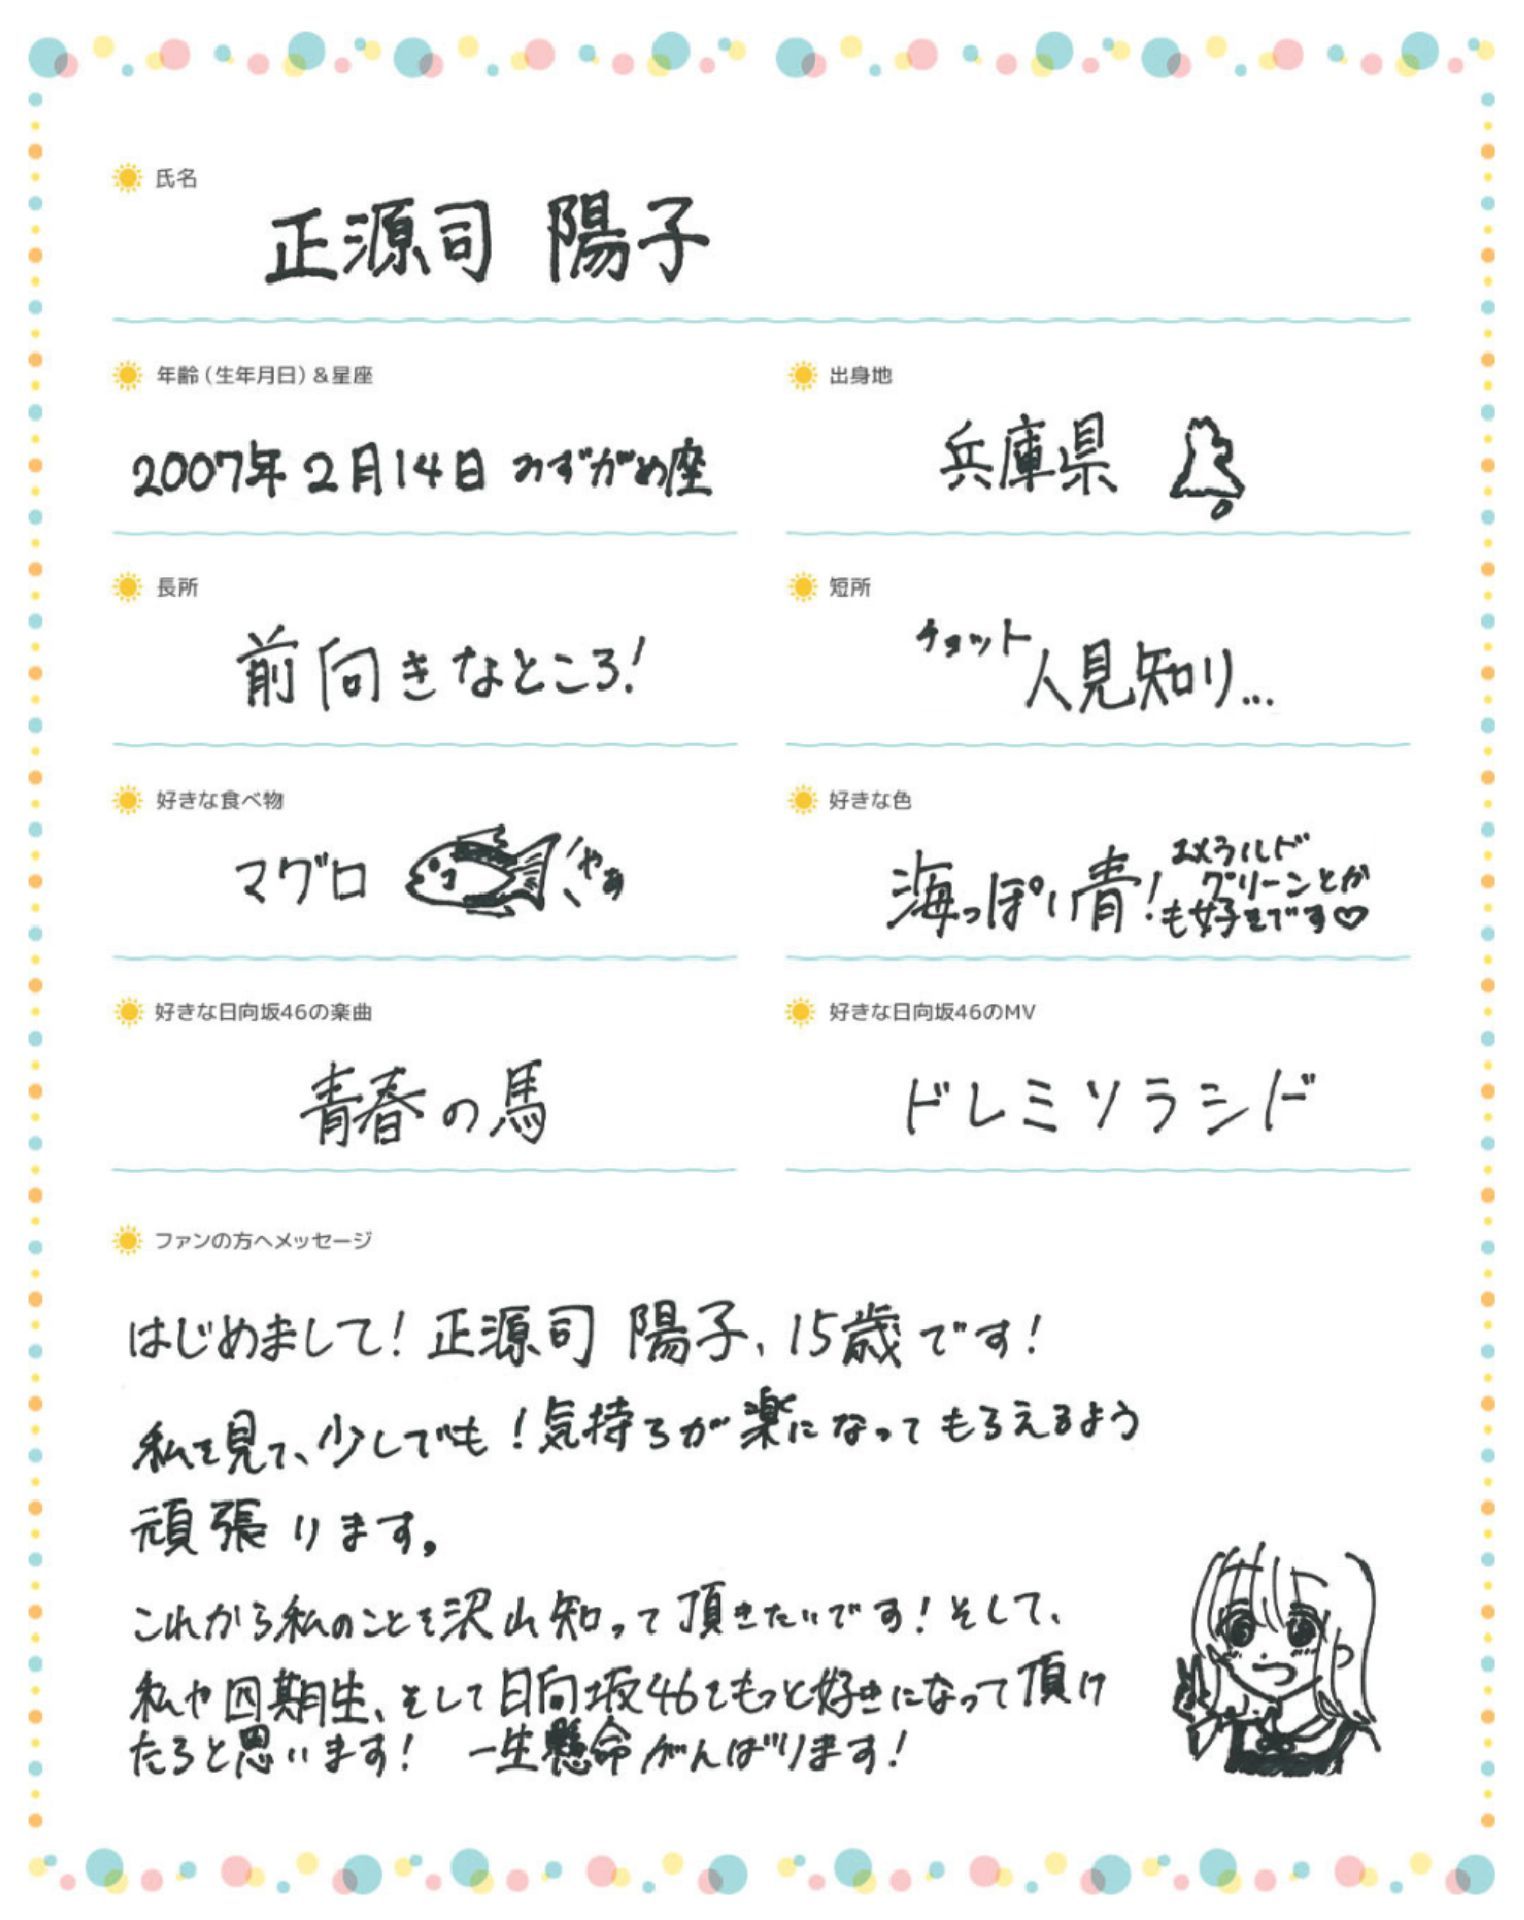 氏名
正源司 陽子
年齢(生年月日)&星座
2007年2月14日 みずがめ座
出身地
兵庫県
長所
前向きなところ!
短所
チョット人見知り...
好きな食べ物
マグロ やぁ
好きな色
海っぽい青!エメラルド
グリーンとか
も好きです♡
好きな日向坂46の楽曲
青春の馬
好きな日向坂46のMV
ドレミソラシド
ファンの方へメッセージ
はじめまして!正源司 陽子、15歳です!
私を見て、少しでも!気持ちが楽になってもらえるよう
頑張ります。
これから私のことを沢山知って頂きたいです!そして、
私や四期生、そして日向坂46をもっと好きになって頂け
たらと思います! 一生懸命がんばります!